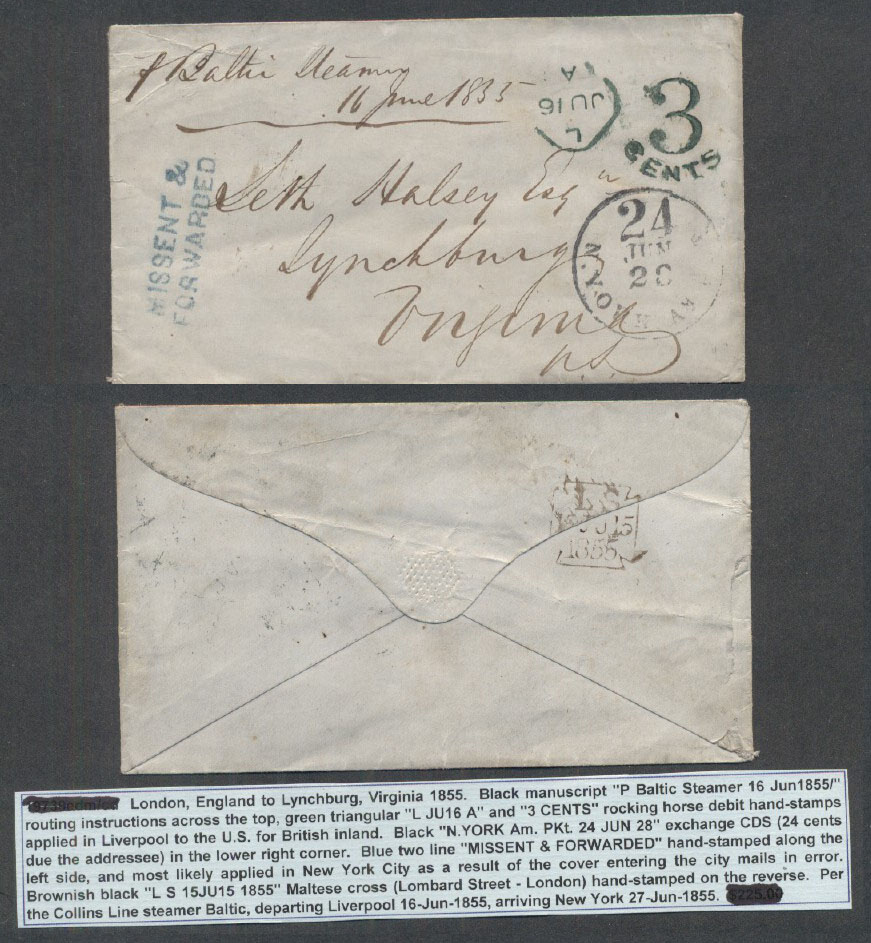 p Baltic Steamer
16 June 1855
L
JU 16
A
3
CENTS
MISSENT &
FORWARDED
Seth Halsey Esqr
Lynchburg
Virginia
U.S.
24
JUN
28
N. YORK AM. PKT.
L S
JU 15
1855
London, England to Lynchburg, Virginia 1855. Black manuscript "P Baltic Steamer 16 Jun1855/"
routing instructions across the top, green triangular "L JU16 A" and "3 CENTS" rocking horse debit hand-stamps
applied in Liverpool to the U.S. for British inland. Black "N.YORK Am. PKt. 24 JUN 28" exchange CDS (24 cents
due the addressee) in the lower right corner. Blue two line "MISSENT & FORWARDED" hand-stamped along the
left side, and most likely applied in New York City as a result of the cover entering the city mails in error.
Brownish black "L S 15JU15 1855" Maltese cross (Lombard Street - London) hand-stamped on the reverse. Per
the Collins Line steamer Baltic, departing Liverpool 16-Jun-1855, arriving New York 27-Jun-1855. $225.00